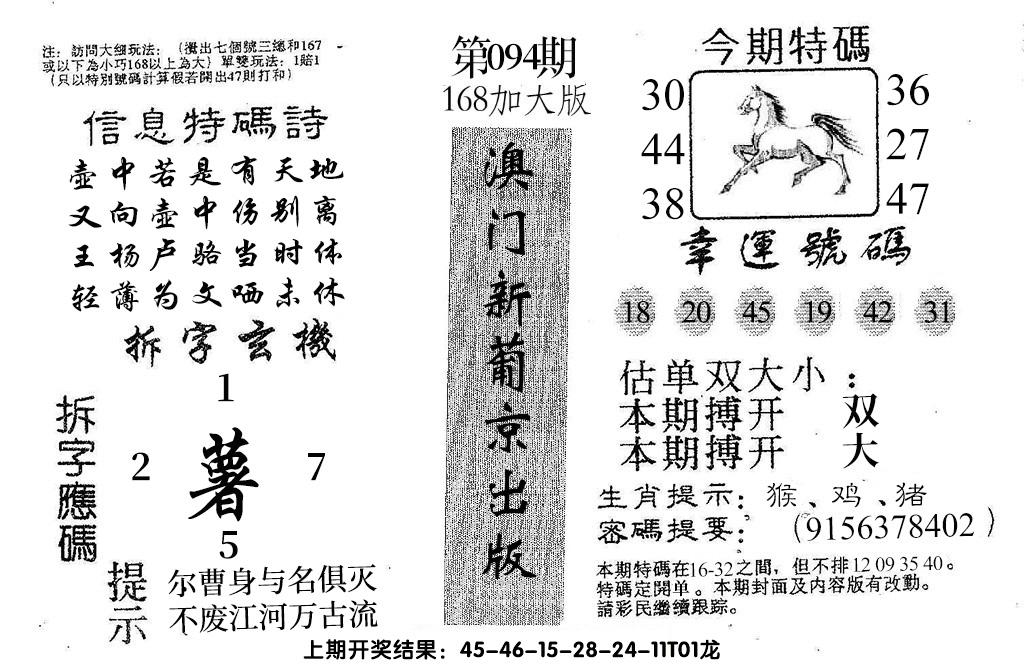 注：訪問大细玩法：（攪出七個號三總和167
或以下為小巧168以上為大）單雙玩法：1賠1
（只以特別號碼計算假若開出47則打和）
信息特碼詩
壶中若是有天地
又向壶中伤别离
王杨卢骆当时体
轻薄为文哂未休
拆字玄機
1
2 薯 7
5
拆字應碼
提示
尔曹身与名俱灭
不废江河万古流
第094期
168加大版
澳门新葡京出版
今期特碼
30 36
44 27
38 47
幸運號碼
18 20 45 19 42 31
估单双大小：
本期搏开 双
本期搏开 大
生肖提示：猴、鸡、猪
密碼提要：（9156378402）
本期特碼在16-32之間，但不排12 09 35 40。
特碼定開单。本期封面及内容版有改動。
請彩民繼續跟踪。
上期开奖结果：45-46-15-28-24-11T01龙